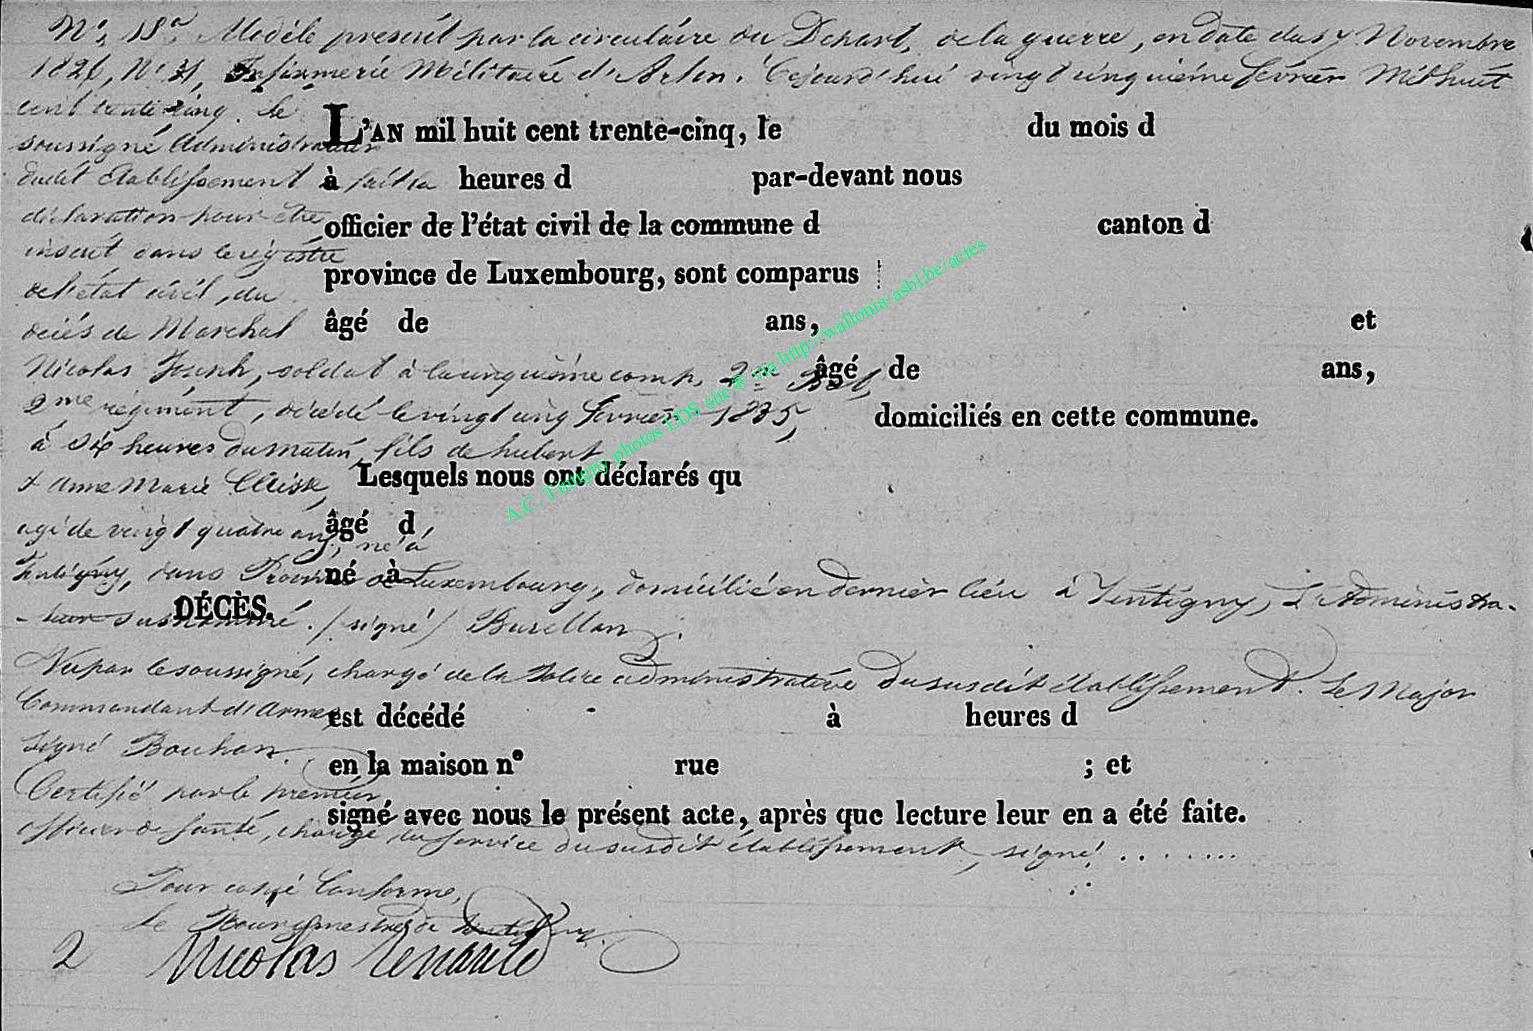 N.º 18.ª Modèle prescrit par la circulaire du Depart. de la guerre, en date du 7 Novembre
1826, Nº 31, Infirmerie Militaire d'Arlon. Cejourd'hui vingt cinquième février Mil huit
cent trente cinq. le
L'AN mil huit cent trente-cinq, le du mois d
soussigné Administrateur
dudit établissement a fait la
à heures d par-devant nous
déclaration pour être
officier de l'état civil de la commune d canton d
inscrit dans le régistre
province de Luxembourg, sont comparus
de l'état civil, du
décès de Marchal
âgé de ans, et
Nicolas Joseph, soldat à la cinquième comp. 2me Bat,
âgé de ans,
2me régiment, décédé le vingt cinq février 1835,
domiciliés en cette commune.
à six heures du matin, fils de hubert
& anne Marie Claisse,
Lesquels nous ont déclarés qu
agé de vingt quatre ans, né à
âgé d
Tintigny, dans Province de Luxembourg, domicilié en dernier lieu à Tintigny, L'Administra-
né à
DÉCÈS.
-teur susnommé. /signé/ Burellan
Vu par le soussigné, chargé de la Police administrative du susdit établissement. Le Major
Commandant d'armes
est décédé à heures d
signé Bouhon.
en la maison nº rue ; et
Certifié par le premier
signé avec nous le présent acte, après que lecture leur en a été faite.
officier de santé, chargé du service du susdit établissement, signé! . . . . . . .
Pour copie Conforme,
Le Bourgmestre de Tintigny.
2 Nicolas Renauld
A.C. Tintigny photos EDS site © via http://wallonia-asbl.be/actes